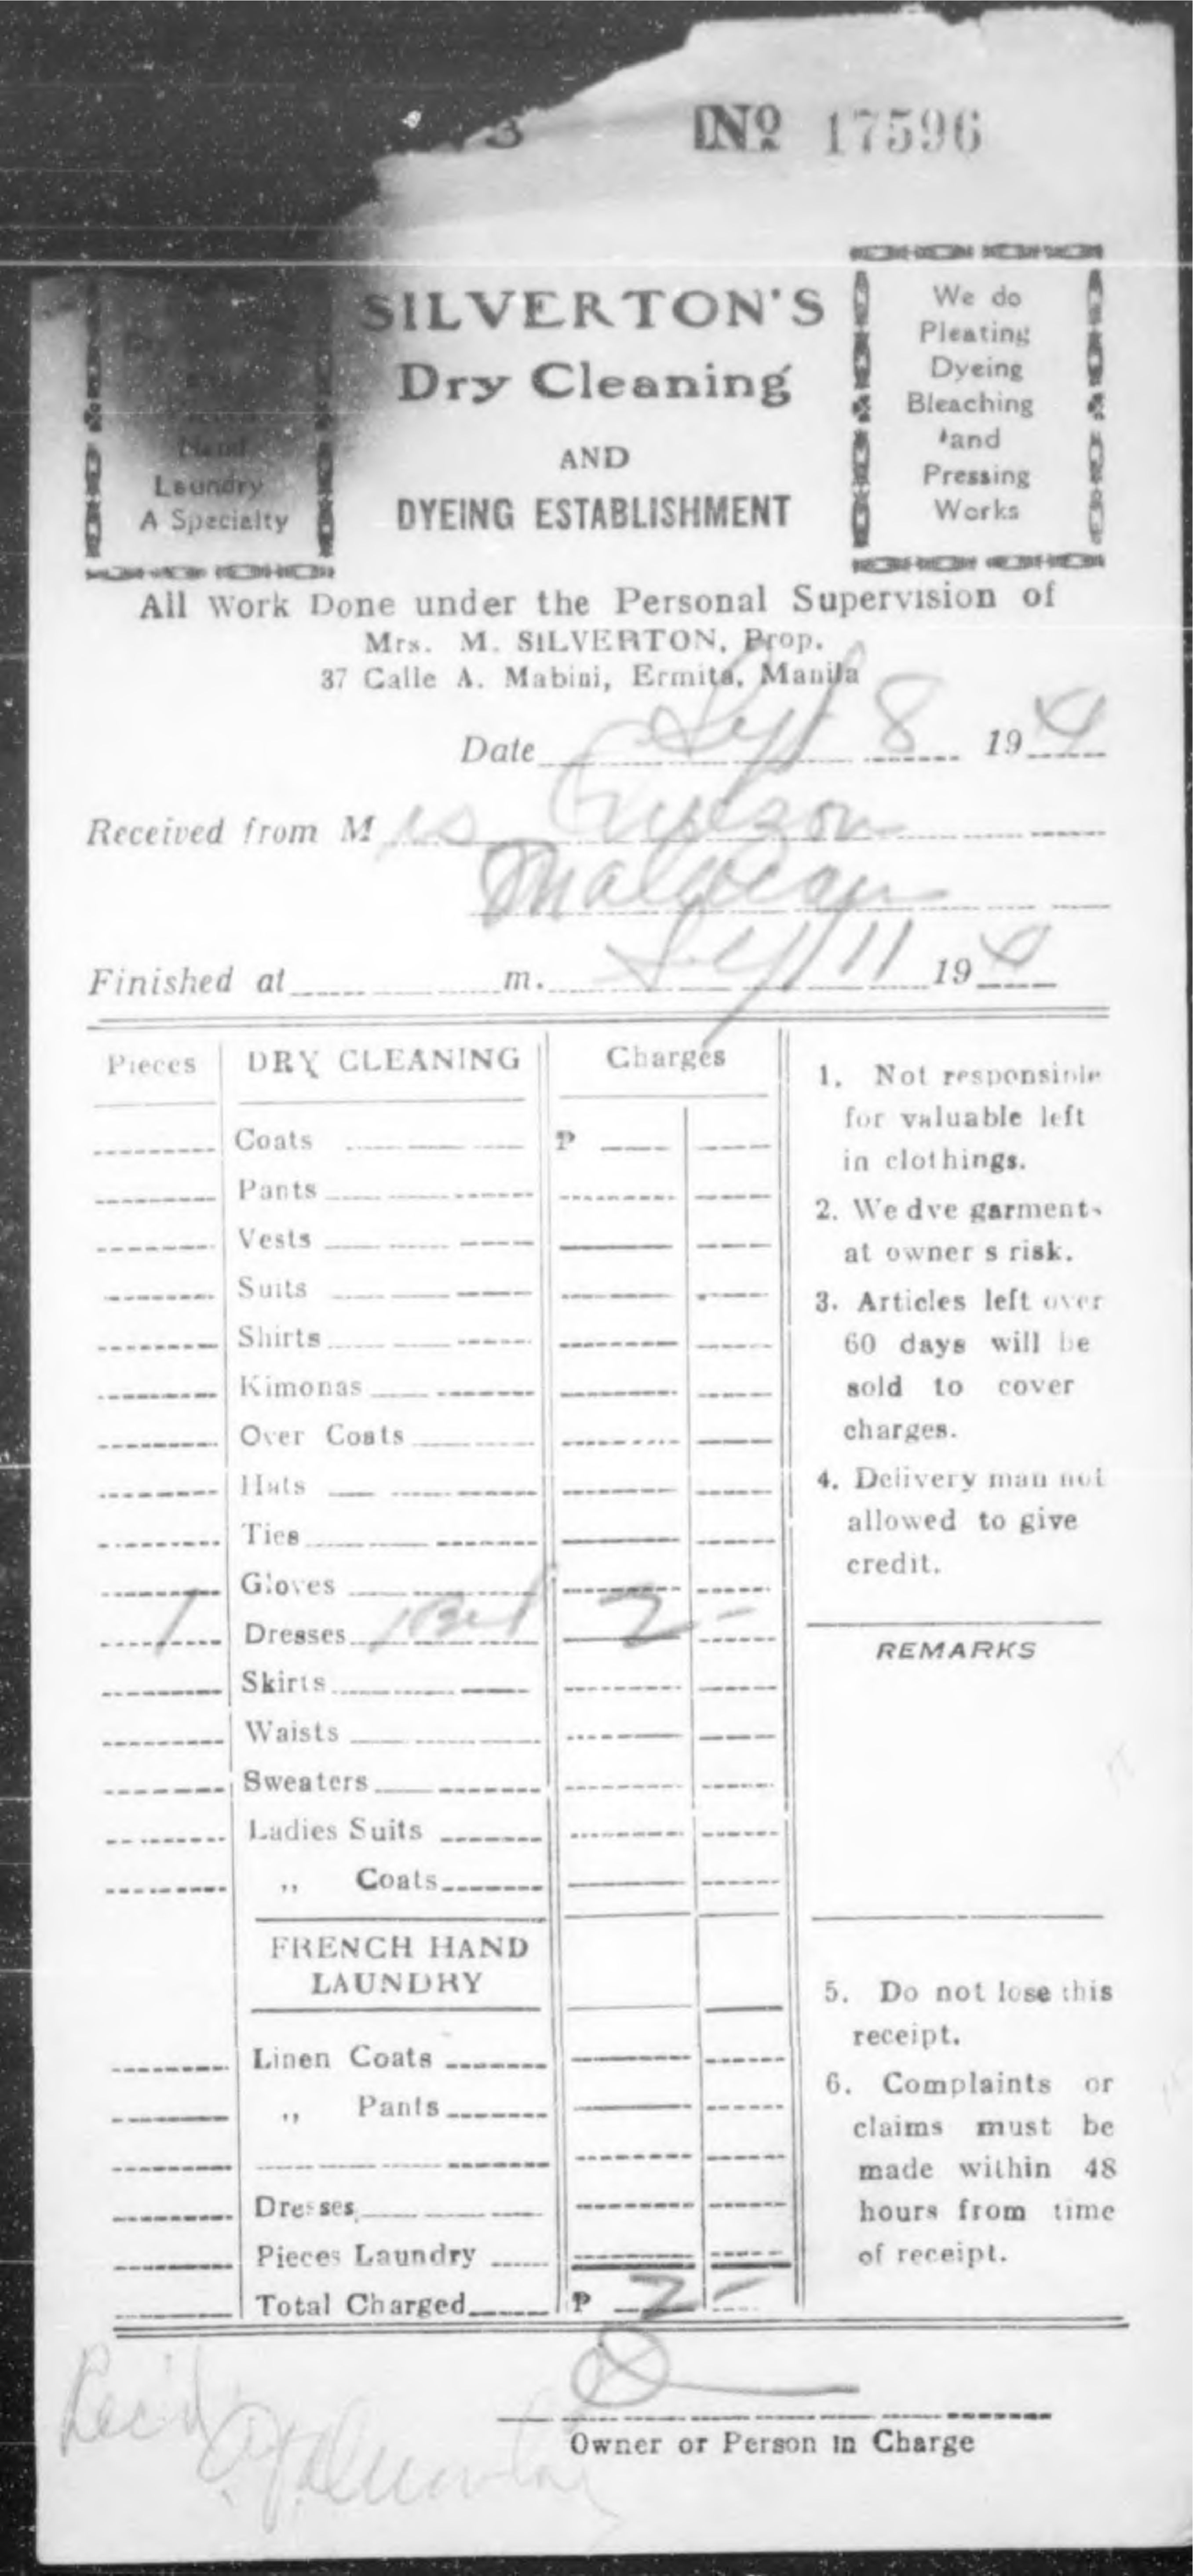 3
No 17596
SILVERTON'S
Dry Cleaning
AND
DYEING ESTABLISHMENT
Hand
Laundry
A Specialty
We do
Pleating
Dyeing
Bleaching
and
Pressing
Works
All Work Done under the Personal Supervision of
Mrs. M. SILVERTON, Prop.
37 Calle A. Mabini, Ermita, Manila
Date Sept 8 194
Received from M rs Quezon
Malacan
Finished at m. Sept 11 194
Pieces DRY CLEANING Charges
Coats P
Pants
Vests
Suits
Shirts
Kimonas
Over Coats
Hats
Ties
Gloves
1 Dresses 2 -
Skirts
Waists
Sweaters
Ladies Suits
,, Coats
FRENCH HAND
LAUNDRY
Linen Coats
,, Pants
Dresses
Pieces Laundry
Total Charged P 2 -
1. Not responsible
for valuable left
in clothings.
2. We dye garments
at owner s risk.
3. Articles left over
60 days will be
sold to cover
charges.
4. Delivery man not
allowed to give
credit.
REMARKS
5. Do not lose this
receipt.
6. Complaints or
claims must be
made within 48
hours from time
of receipt.
Rec'd
Owner or Person in Charge